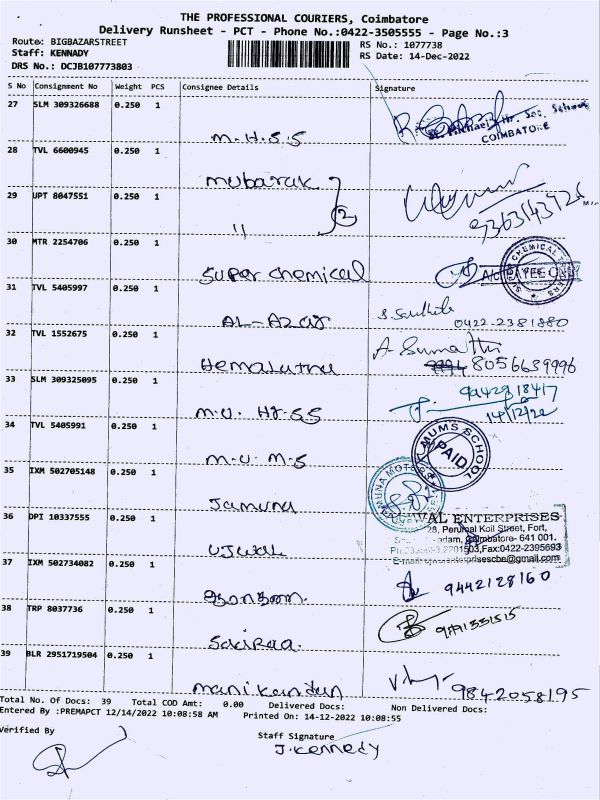 THE PROFESSIONAL COURIERS, Coimbatore
Delivery Runsheet - PCT - Phone No.:0422-3505555 - Page No.:3
Route: BIGBAZARSTREET
RS No.: 1077738
Staff: KENNADY
RS Date: 14-Dec-2022
DRS No.: DCJB107773803
S No Consignment No Weight PCS Consignee Details Signature
27 SLM 309326688 0.250 1
M.H.S.S
St. Michael's Hr. Sec. School
COIMBATORE
28 TVL 6600945 0.250 1
Mubarak
29 UPT 8047551 0.250 1
" 2
9363143726
30 MTR 2254706 0.250 1
Super chemical
A/c PAYEE ONLY
31 TVL 5405997 0.250 1
AL-Azar
0422-2381880
32 TVL 1552675 0.250 1
Hemalutha
A-Sumathi
8056639996
33 SLM 309325095 0.250 1
M.U. Hr.SS
9442918417
14/12/22
34 TVL 5405991 0.250 1
M.U.M.S
MUMS SCHOOL
PAID
35 IXM 502705148 0.250 1
Jamuna
JAMUNA MOTORS
36 DPI 10337555 0.250 1
Ujwal
UJWAL ENTERPRISES
28, Perumal Koil Street, Fort,
Coimbatore- 641 001.
2201503,Fax:0422-2395693
37 IXM 502734082 0.250 1
9442128160
38 TRP 8037736 0.250 1
Sakiraa
39 BLR 2951719504 0.250 1
Manikandan
9842058195
Total No. Of Docs: 39 Total COD Amt: 0.00 Delivered Docs: Non Delivered Docs:
Entered By :PREMAPCT 12/14/2022 10:08:58 AM Printed On: 14-12-2022 10:08:55
Verified By
Staff Signature
J.Kennedy